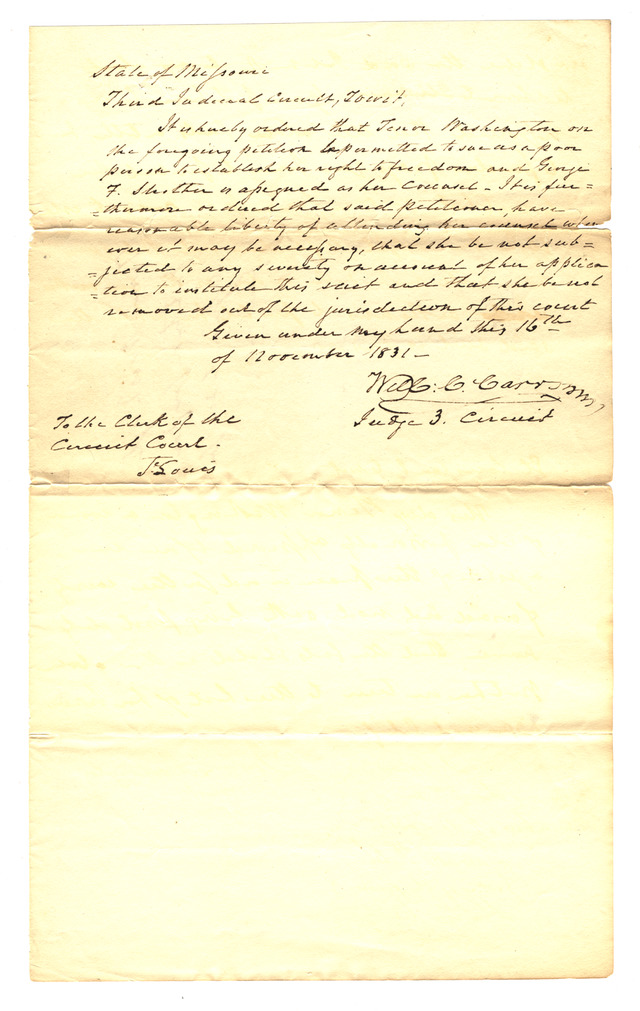 State of Missouri
Third Judicial Circuit, Towit,
It is hereby ordered that Tenor Washington on
the foregoing petition be permitted to sue as a poor
person to establish her right to freedom and George
F. Strother is assigned as her Counsel - It is fur=
=thermore ordered that said petitioner, have
reasonable liberty of attending her counsel when
ever it may be necessary, that she be not sub=
=jected to any severity on account of her applica
=tion to institute this suit and that she be not
removed out of the jurisdiction of this court
Given under my hand this 16th
of November 1831 -
Will: C. Carr
Judge 3. Circuit
To the Clerk of the
Circuit Court -
St Louis